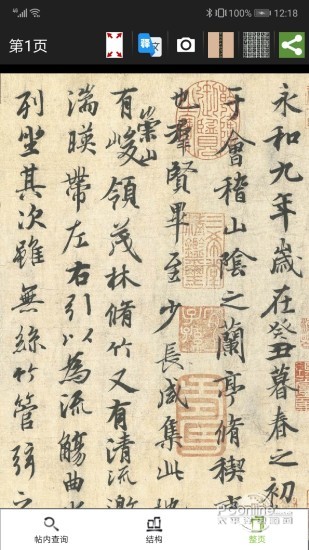 100% 12:18
第1页
永和九年歲在癸丑暮春之初
于會稽山陰之蘭亭脩禊事
也羣賢畢至少長咸集此地
有崇山峻領茂林脩竹又有清流激
湍暎帶左右引以為流觴曲水
列坐其次雖無絲竹管弦之
帖内查询
结构
整页